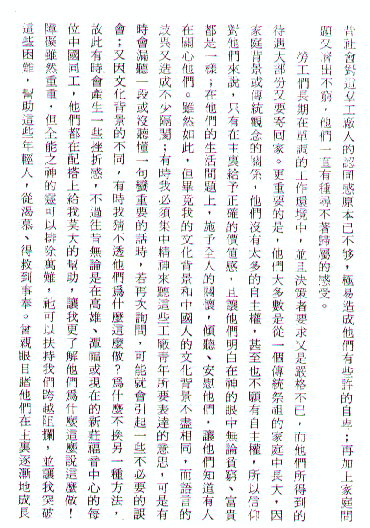 昔社會對這羣工廠人的認同感原本已不够，極易造成他們有些許的自卑；再加上家庭問
題又層出不窮，他們一直有種尋不著歸屬的感受。
勞工們長期在單調的工作環境中，並且決策者要求又是嚴格不已，而他們所得到的
待遇大部份又要寄回家。更重要的是，他們大多數是從一個傳統祭祖的家庭中長大，因
家庭背景或傳統觀念的關係，他們沒有太多的自主權，甚至也不願有自主權，所以信仰
對他們來說，只有在主裏給予正確的價值感，且讓他們明白在神的眼中無論貧窮、富貴
都是一樣；在他們的生活問題上，施予全人的關懷，傾聽、安慰他們，讓他們知道有人
在關心他們。雖然如此，但畢竟我的文化背景和中國人的文化背景不盡相同，而語言的
歧異又造成不少隔閡；有時我必須集中精神來聽這些工廠青年所要表達的意思，可是有
時會漏聽一段或沒聽懂一句蠻重要的話時，若再次詢問，可能就會引起一些不必要的誤
會；又因文化背景的不同，有時我猜不透他們爲什麼這麼做？爲什麼不換另一種方法，
故此有時會產生一些挫折感，不過往昔無論是在高雄、潭福或現在的新莊福音中心的每
位中國同工，他們都在配搭上給我莫大的幫助，讓我更了解他們爲什麼這麼說這麼做！
障礙雖然重重，但全能之神的靈可以排除萬難，祂可以扶持我們跨越阻攔，並讓我突破
這些困難，幫助這些年輕人，從渴慕、得救到事奉。曾親眼目睹他們在主裏逐漸地成長